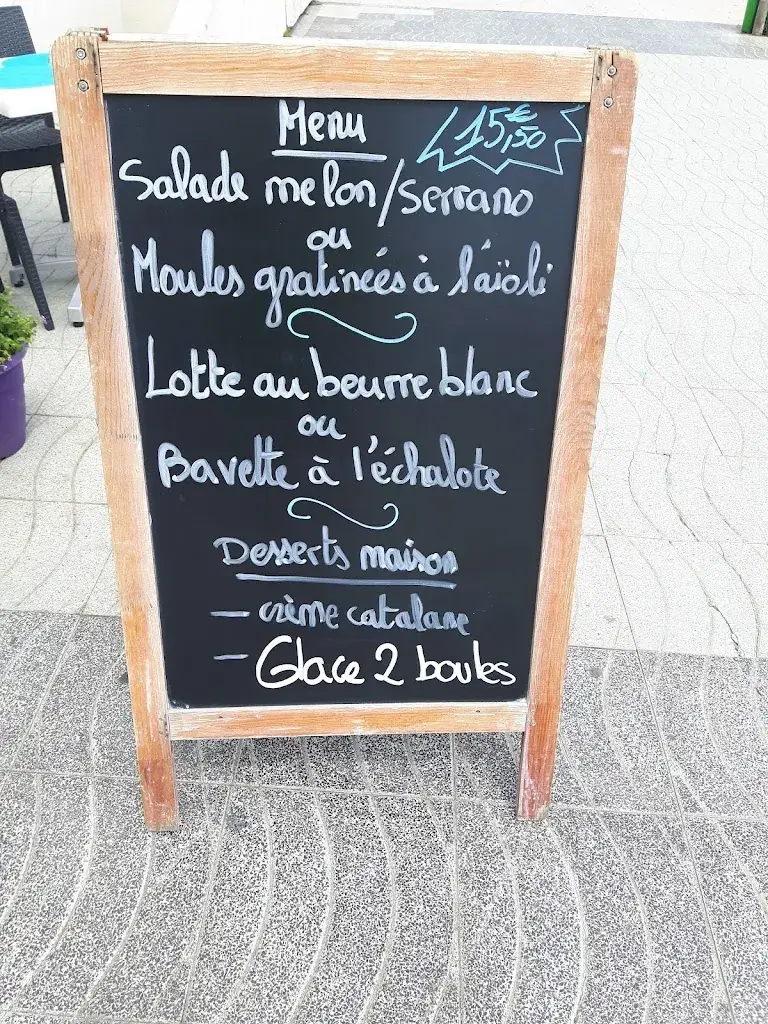 Menu
15€,50
Salade melon/serrano
ou
Moules gratinées à l'aïoli
Lotte au beurre blanc
ou
Bavette à l'échalote
Desserts maison
- crème catalane
- Glace 2 boules